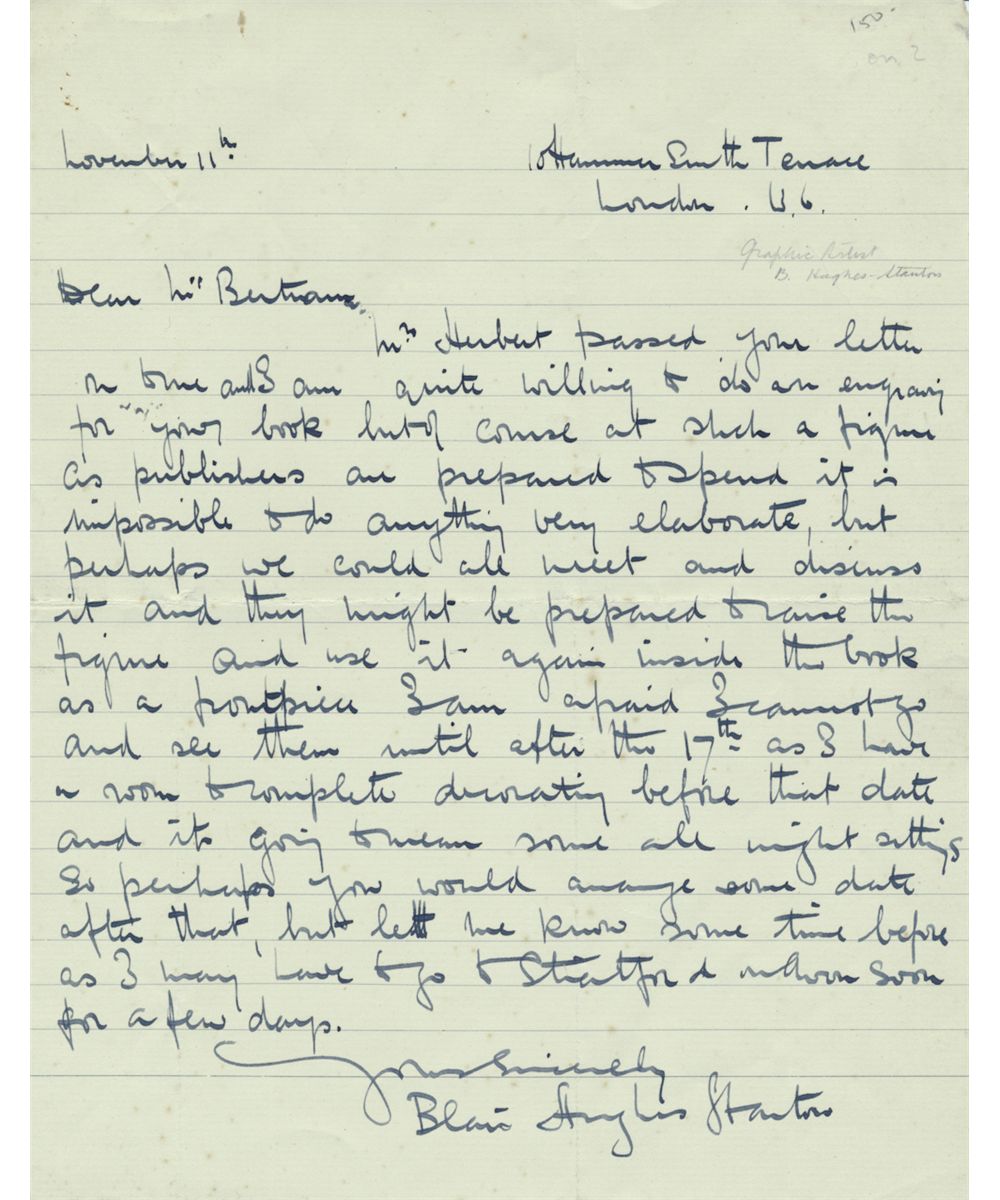 150-
on 2
November 11th
10 Hammer Smith Terrace
London. W.6.
Graphic Artist
B. Hughes-Stanton
Dear Mr Bertram.
Mrs Herbert passed your letter
on to me and I am quite willing to do an engraving
for your book but of course at such a figure
as publishers are prepared to spend it is
impossible to do anything very elaborate, but
perhaps we could all meet and discuss
it and they might be prepared to raise the
figure and use it again inside the book
as a frontpiece I am afraid I cannot go
and see them until after the 17th as I have
a room to complete decorating before that date
and its going to mean some all night sittings
So perhaps you would arrange some date
after that, but let me know some time before
as I may have to go to Stratford on Avon soon
for a few days.
Yours Sincerely
Blair Hughes Stanton